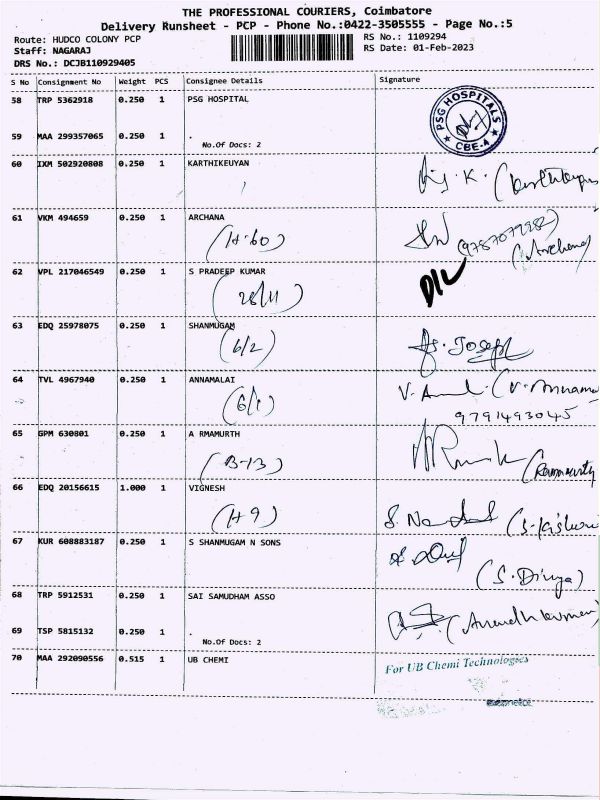 THE PROFESSIONAL COURIERS, Coimbatore
Delivery Runsheet - PCP - Phone No.:0422-3505555 - Page No.:5
Route: HUDCO COLONY PCP RS No.: 1109294
Staff: NAGARAJ RS Date: 01-Feb-2023
DRS No.: DCJB110929405
S No Consignment No Weight PCS Consignee Details Signature
58 TRP 5362918 0.250 1 PSG HOSPITAL
PSG HOSPITALS
CBE-4
59 MAA 299357065 0.250 1 .
No.Of Docs: 2
60 IXM 502920808 0.250 1 KARTHIKEUYAN
61 VKM 494659 0.250 1 ARCHANA
(H-60) (Archana)
62 VPL 217046549 0.250 1 S PRADEEP KUMAR
(28/11) D/L
63 EDQ 25978075 0.250 1 SHANMUGAM
(6/2) Joseph
64 TVL 4967940 0.250 1 ANNAMALAI
(6/1) 9791493045
65 GPM 630801 0.250 1 A RMAMURTH
(B-13) (Rammurty
66 EDQ 20156615 1.000 1 VIGNESH
(H9)
67 KUR 608883187 0.250 1 S SHANMUGAM N SONS
(S. Divya)
68 TRP 5912531 0.250 1 SAI SAMUDHAM ASSO
69 TSP 5815132 0.250 1 .
No.Of Docs: 2
70 MAA 292090556 0.515 1 UB CHEMI
For UB Chemi Technologies